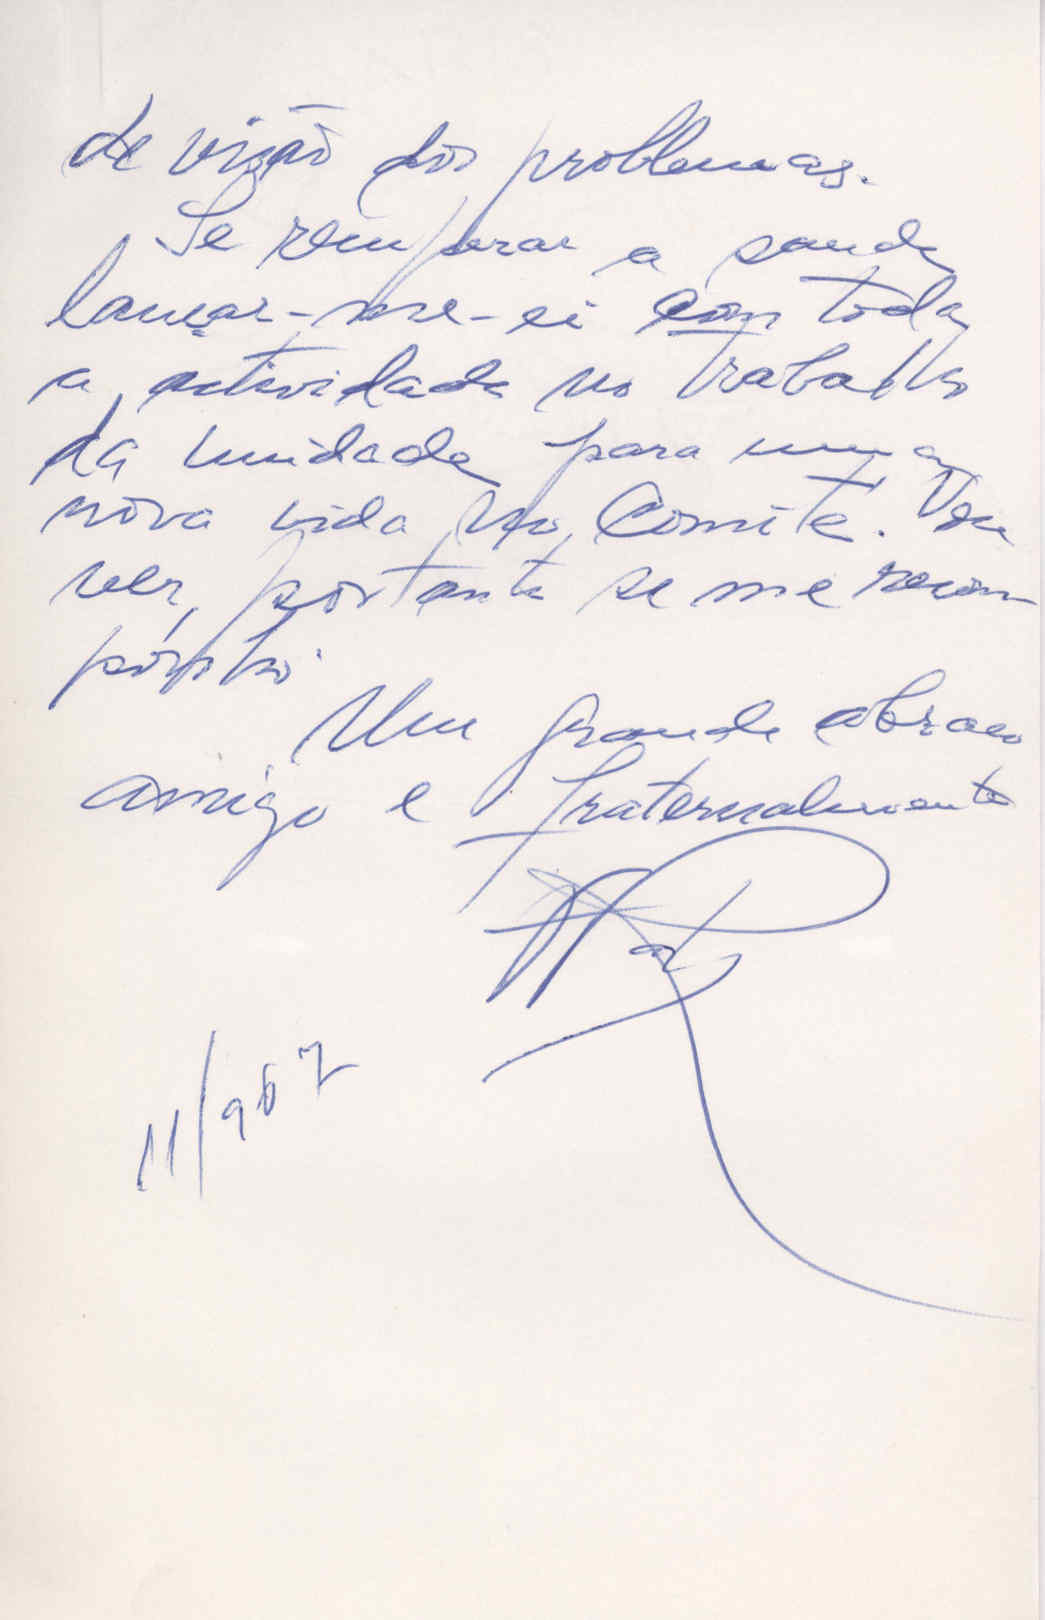 de visão dos problemas.
Se recuperar a saude
lançar-me-ei com toda
a actividade no trabalho
da unidade para uma
nova vida no Comité. Vou
ver, portanto se me recom
ponho.
Um grande abraço
amigo e fraternalmente
11/967